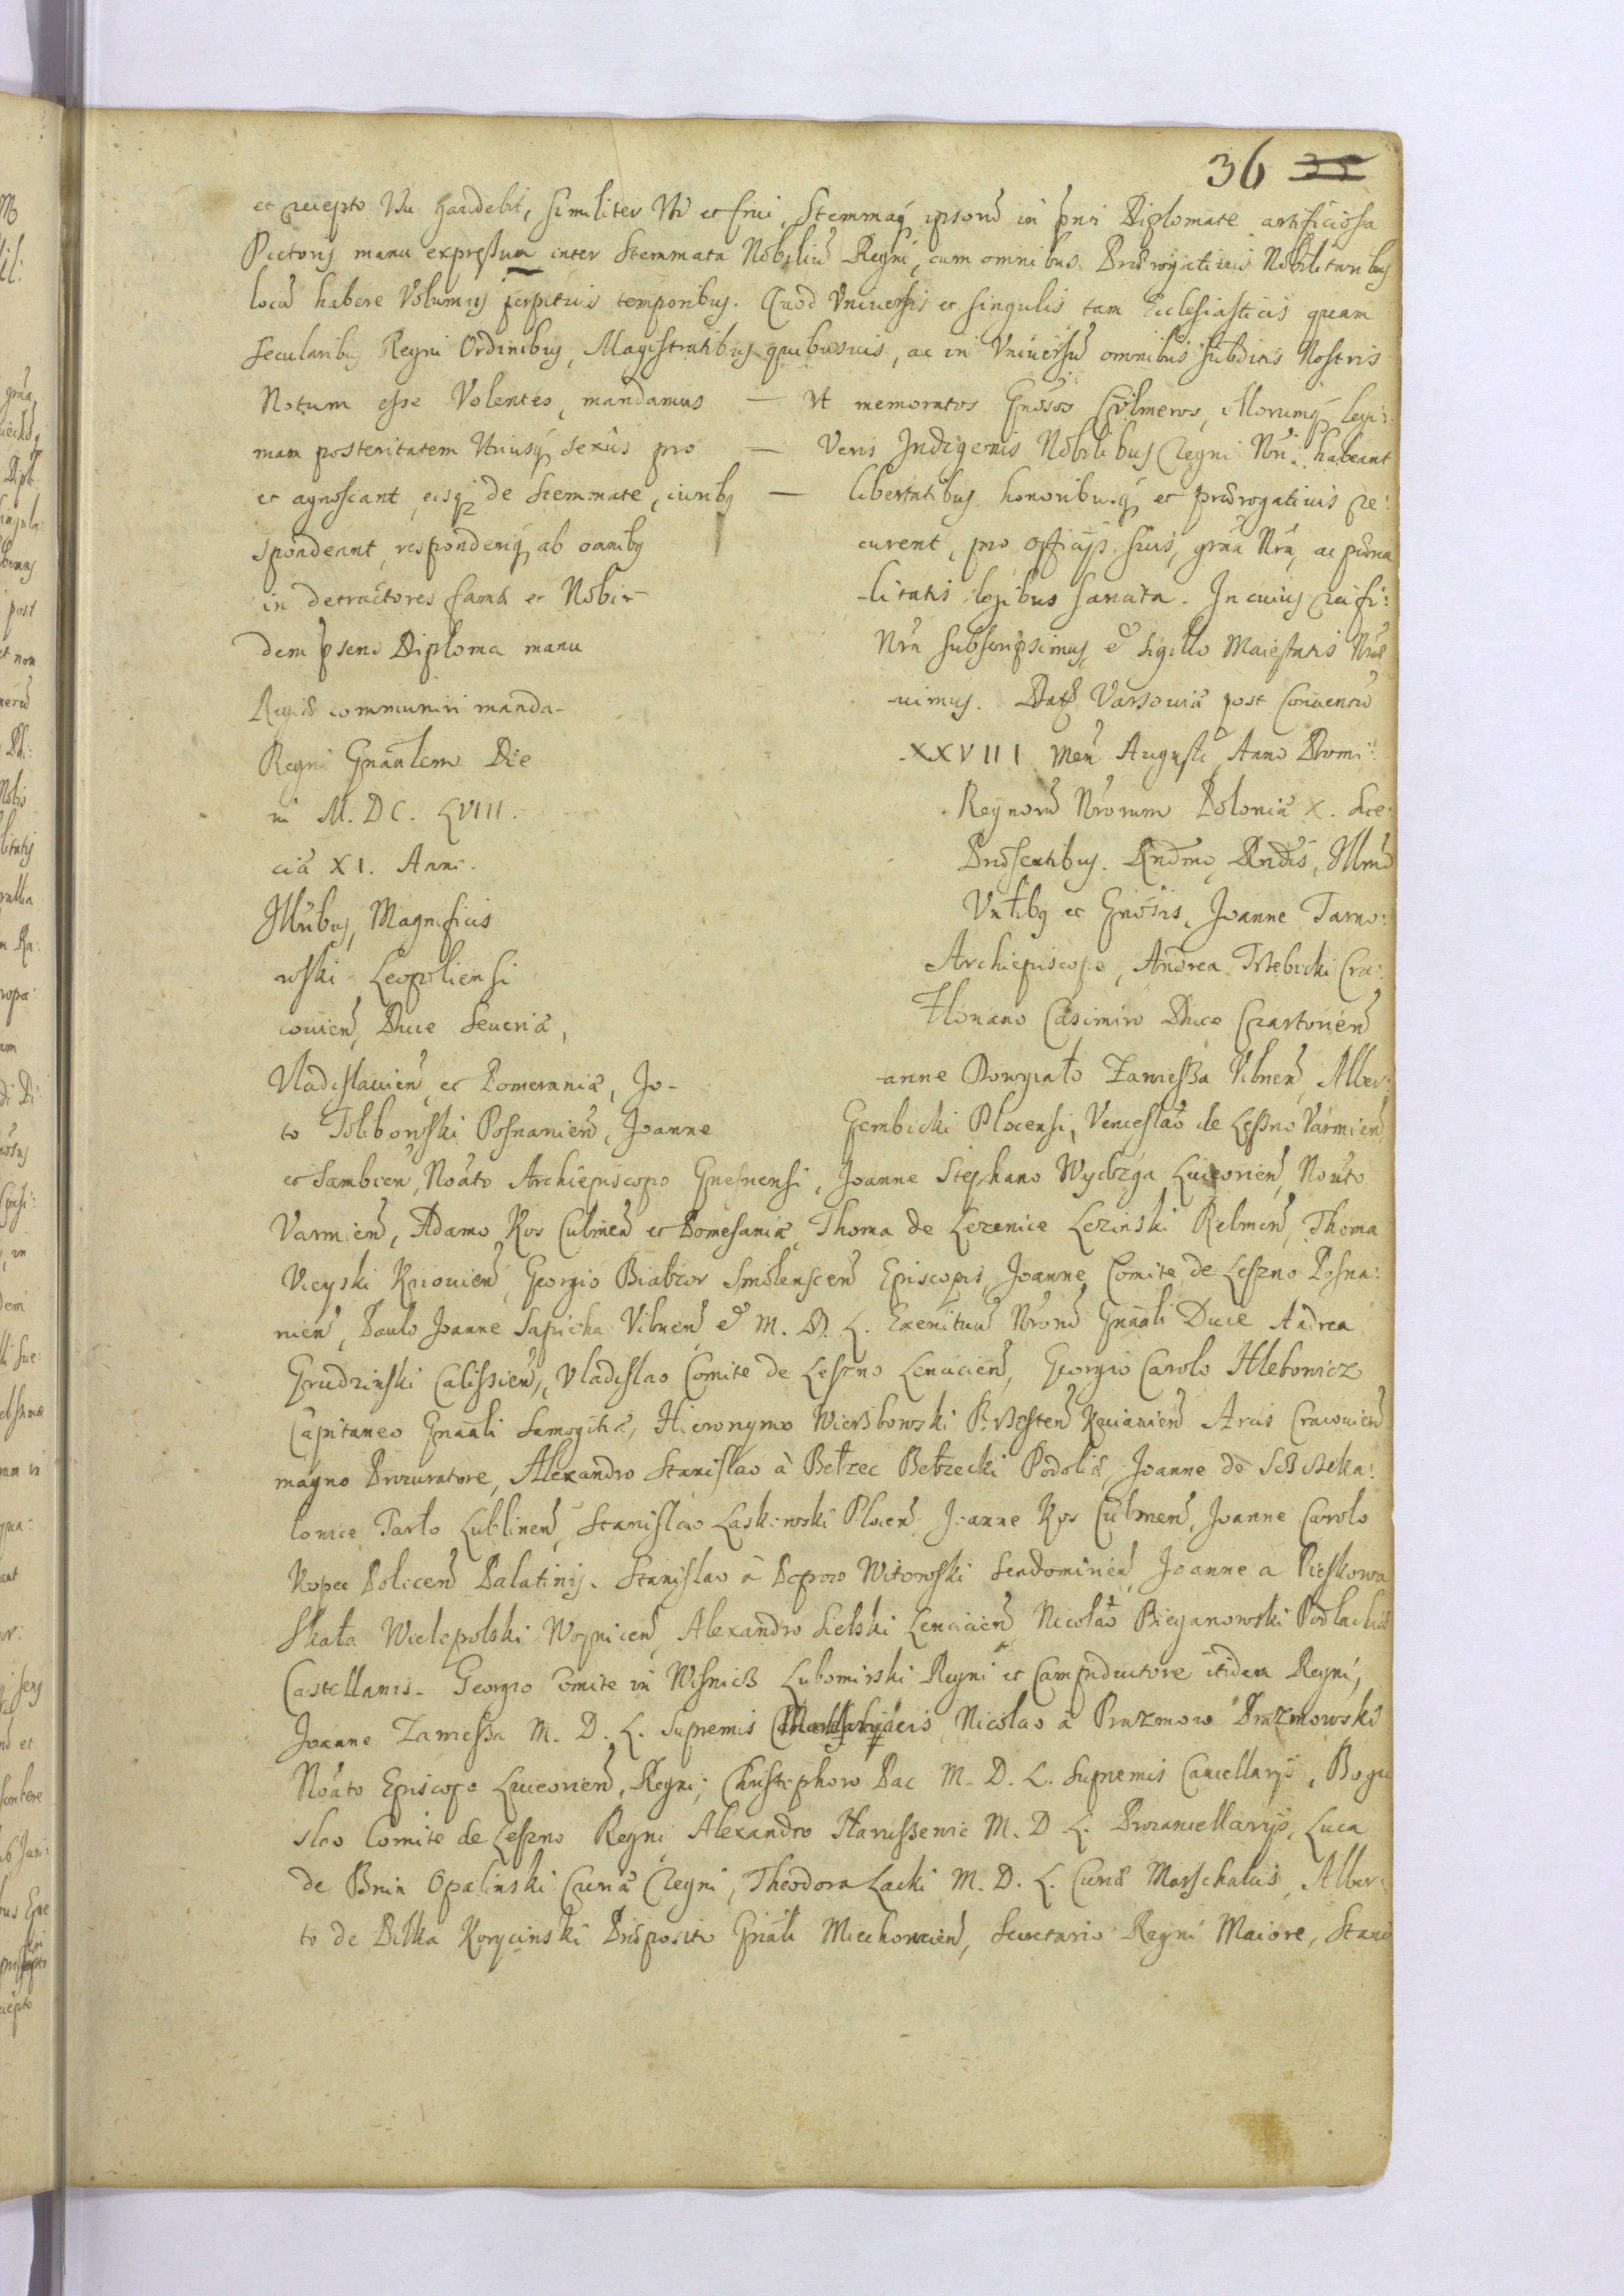 36 35
et recepto Usu gaudebit, similiter Uti et frui, Stemmaq ipsorū in pnti Diplomate artificiosa
Pictoris manu expressum inter Stemmata Nobiliū Regni, cum omnibus Prærogativis Nobilitaribus
locū habere Volumus perpetuis temporibus. Quod Universis et singulis tam Ecclesiasticis quam
secularibus Regni Ordinibus, Magistratibus quibusvis, ac in Universū omnibus subditis Nostris
Notum esse Volentes, mandamus — Ut memoratos Gnosos Csilmeros, illorumq legi:
mam posteritatem Utriusq sexûs pro — Veris Indigenis Nobilibus Regni Nri habeant
et agnoscant, eisq de stemmate, iuribq — libertatibus honoribusq et prærogativis re:
spondeant, responderiq ab oambq curent, pro officijs suis, grãa Nrã, ac pœna
in detractores famæ et Nobi- -litatis legibus sancita. In cuius rei fi:
dem psens Diploma manu Nrã subscripsimus, et sigillo Maiestatis Nræ
Regiæ communiri manda- -vimus. Datū Varsoviæ post Conventū
Regni Gnãalem Die XXVIII Men̄ Augusti Anno Domi:
ni M. DC. LVIII. Regnorū Nrorum Poloniæ X. Sue:
ciæ XI. Anni. Præsentibus. Rndmo, Rndis, Illmo
Illribus, Magnificis Vntibq et Gnosis, Joanne Tarno:
wski Leopoliensi Archiepiscopo, Andrea Trzebicki Cra:
covien̄, Duce Severiæ, Floriano Casimiro Duce Czartorien̄
Vladislavien̄, et Pomeraniæ, Jo- -anne Dowgiało Zawissa Vilnen̄, Alber:
to Tolibowski Posnanien̄, Joanne Gembicki Plocensi, Venceslao de Lessno Varmien̄,
et Sambien̄, Noãto Archiepiscopo Gnesnensi, Joanne Stephano Wydzga Luceorien̄, Noãto
Varmien̄, Adamo Kos Culmen̄ et Pomesaniæ, Thoma de Lezenice Lezinski Relmen̄, Thoma
Vieyski Kiiovien̄, Georgio Białzor Smolenscen̄ Episcopis, Joanne Comite de Leszno Posna:
nien̄, Paulo Joanne Sapieha Vilnen̄ et M. D. L. Exercituū Nrorū Gnãali Duce Andrea
Grudzinski Calissien̄, Vladislao Comite de Leszno Lencicien̄, Georgio Carolo Hlebowicz
Capitaneo Gnãali Samogitiæ, Hieronymo Wierzbowski Brzesten̄ Kuiavien̄ Arcis Cracovien̄
magno Procuratore, Alexandro Stanislao à Bełzec Bełzecki Podoliæ, Joanne de Sczeka:
rowice Tarło Lublinen̄, Stanislao Laskowski Plocen̄ Joanne Kos Culmen̄, Joanne Carolo
Kopec Policen̄ Palatinis. Stanislao à Poprow Witowski Sendomirien̄, Joanne a Pieskowa
Skała Wielopolski Woynicen̄, Alexandro Sielski Lencicien̄, Nicolao Bieganowski Podlachiæ
Castellanis. Georgio Comite in Wisnicz Lubomirski Regni et Campiductore itidem Regni,
Joanne Zawissa M. D. L. Supremis Marschalcis, Nicolao à Prazmow Prazmowski
Noãto Episcopo Luceorien̄, Regni, Christophoro Pac M. D. L. Supremis Cancellarijs, Bogu
slao Comite de Leszno Regni Alexandro Naruszewic M. D. L. Procancellarijs, Luca
de Bnin Opalinski Curiæ Regni, Theodora Lacki M. D. L. Curiæ Marschalcis, Alber:
to de Pilka Korycinski Præposito Gnãali Miechovien̄, Secretario Regni Maiore, Stani